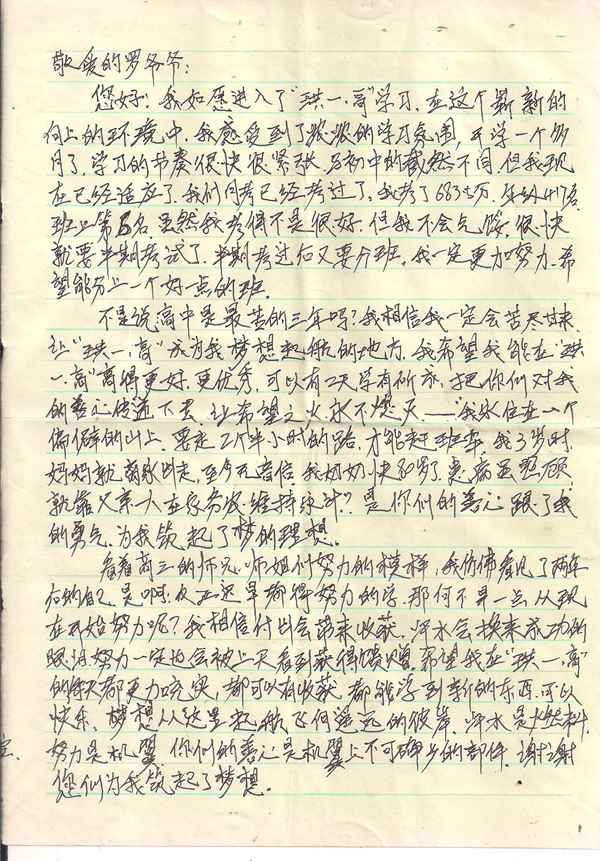 敬爱的罗爷爷：
您好！我如愿进入了“珙一高”学习，在这个崭新的
向上的环境中，我感受到了浓浓的学习氛围，开学一个多
月了，学习的节奏很快很紧张，与初中的截然不同，但我现
在已经适应了。我们月考已经考过了，我考了683分，
班上第 名，虽然我考得不是很好，但我不会气馁，很快
就要半期考试了，半期考过后又要分班，我一定更加努力，希
望能分上一个好一点的班。
不是说高中是最苦的三年吗？我相信我一定会苦尽甘来，
让“珙一高”成为我梦想起航的地方，我希望我能在“珙
一高”高得更好，更优秀，可以有一天学有所成，把你们对我
的善心传递下去，让希望之火永不熄灭。——“我家住在一个
偏僻的山上，要走2个半小时的路，才能赶班车，我3岁时
妈妈就离家出走，至今无音信，我奶奶快80岁了，患病
就靠父亲一人在家务农维持家计”，是你们的善心 了我
的勇气，为我筑起了梦的理想。
看着高三的师兄、师姐们努力的模样，我仿佛看见了两年
后的自己，是啊，反正迟早都得努力的话，那何不早一点，从现
在开始努力呢？我相信付出会带来收获，汗水会换来成功的
眼泪，努力一定也会被上天看到获得馈赠，希望我在“珙一高”
的每天都更加充实，都可以有收获，都能学到新的东西，可以
快乐，梦想从这里起航飞向遥远的彼岸，汗水是燃料，
努力是机翼，你们的善心是机翼上不可缺少的部件，谢谢
您们为我筑起了梦想。